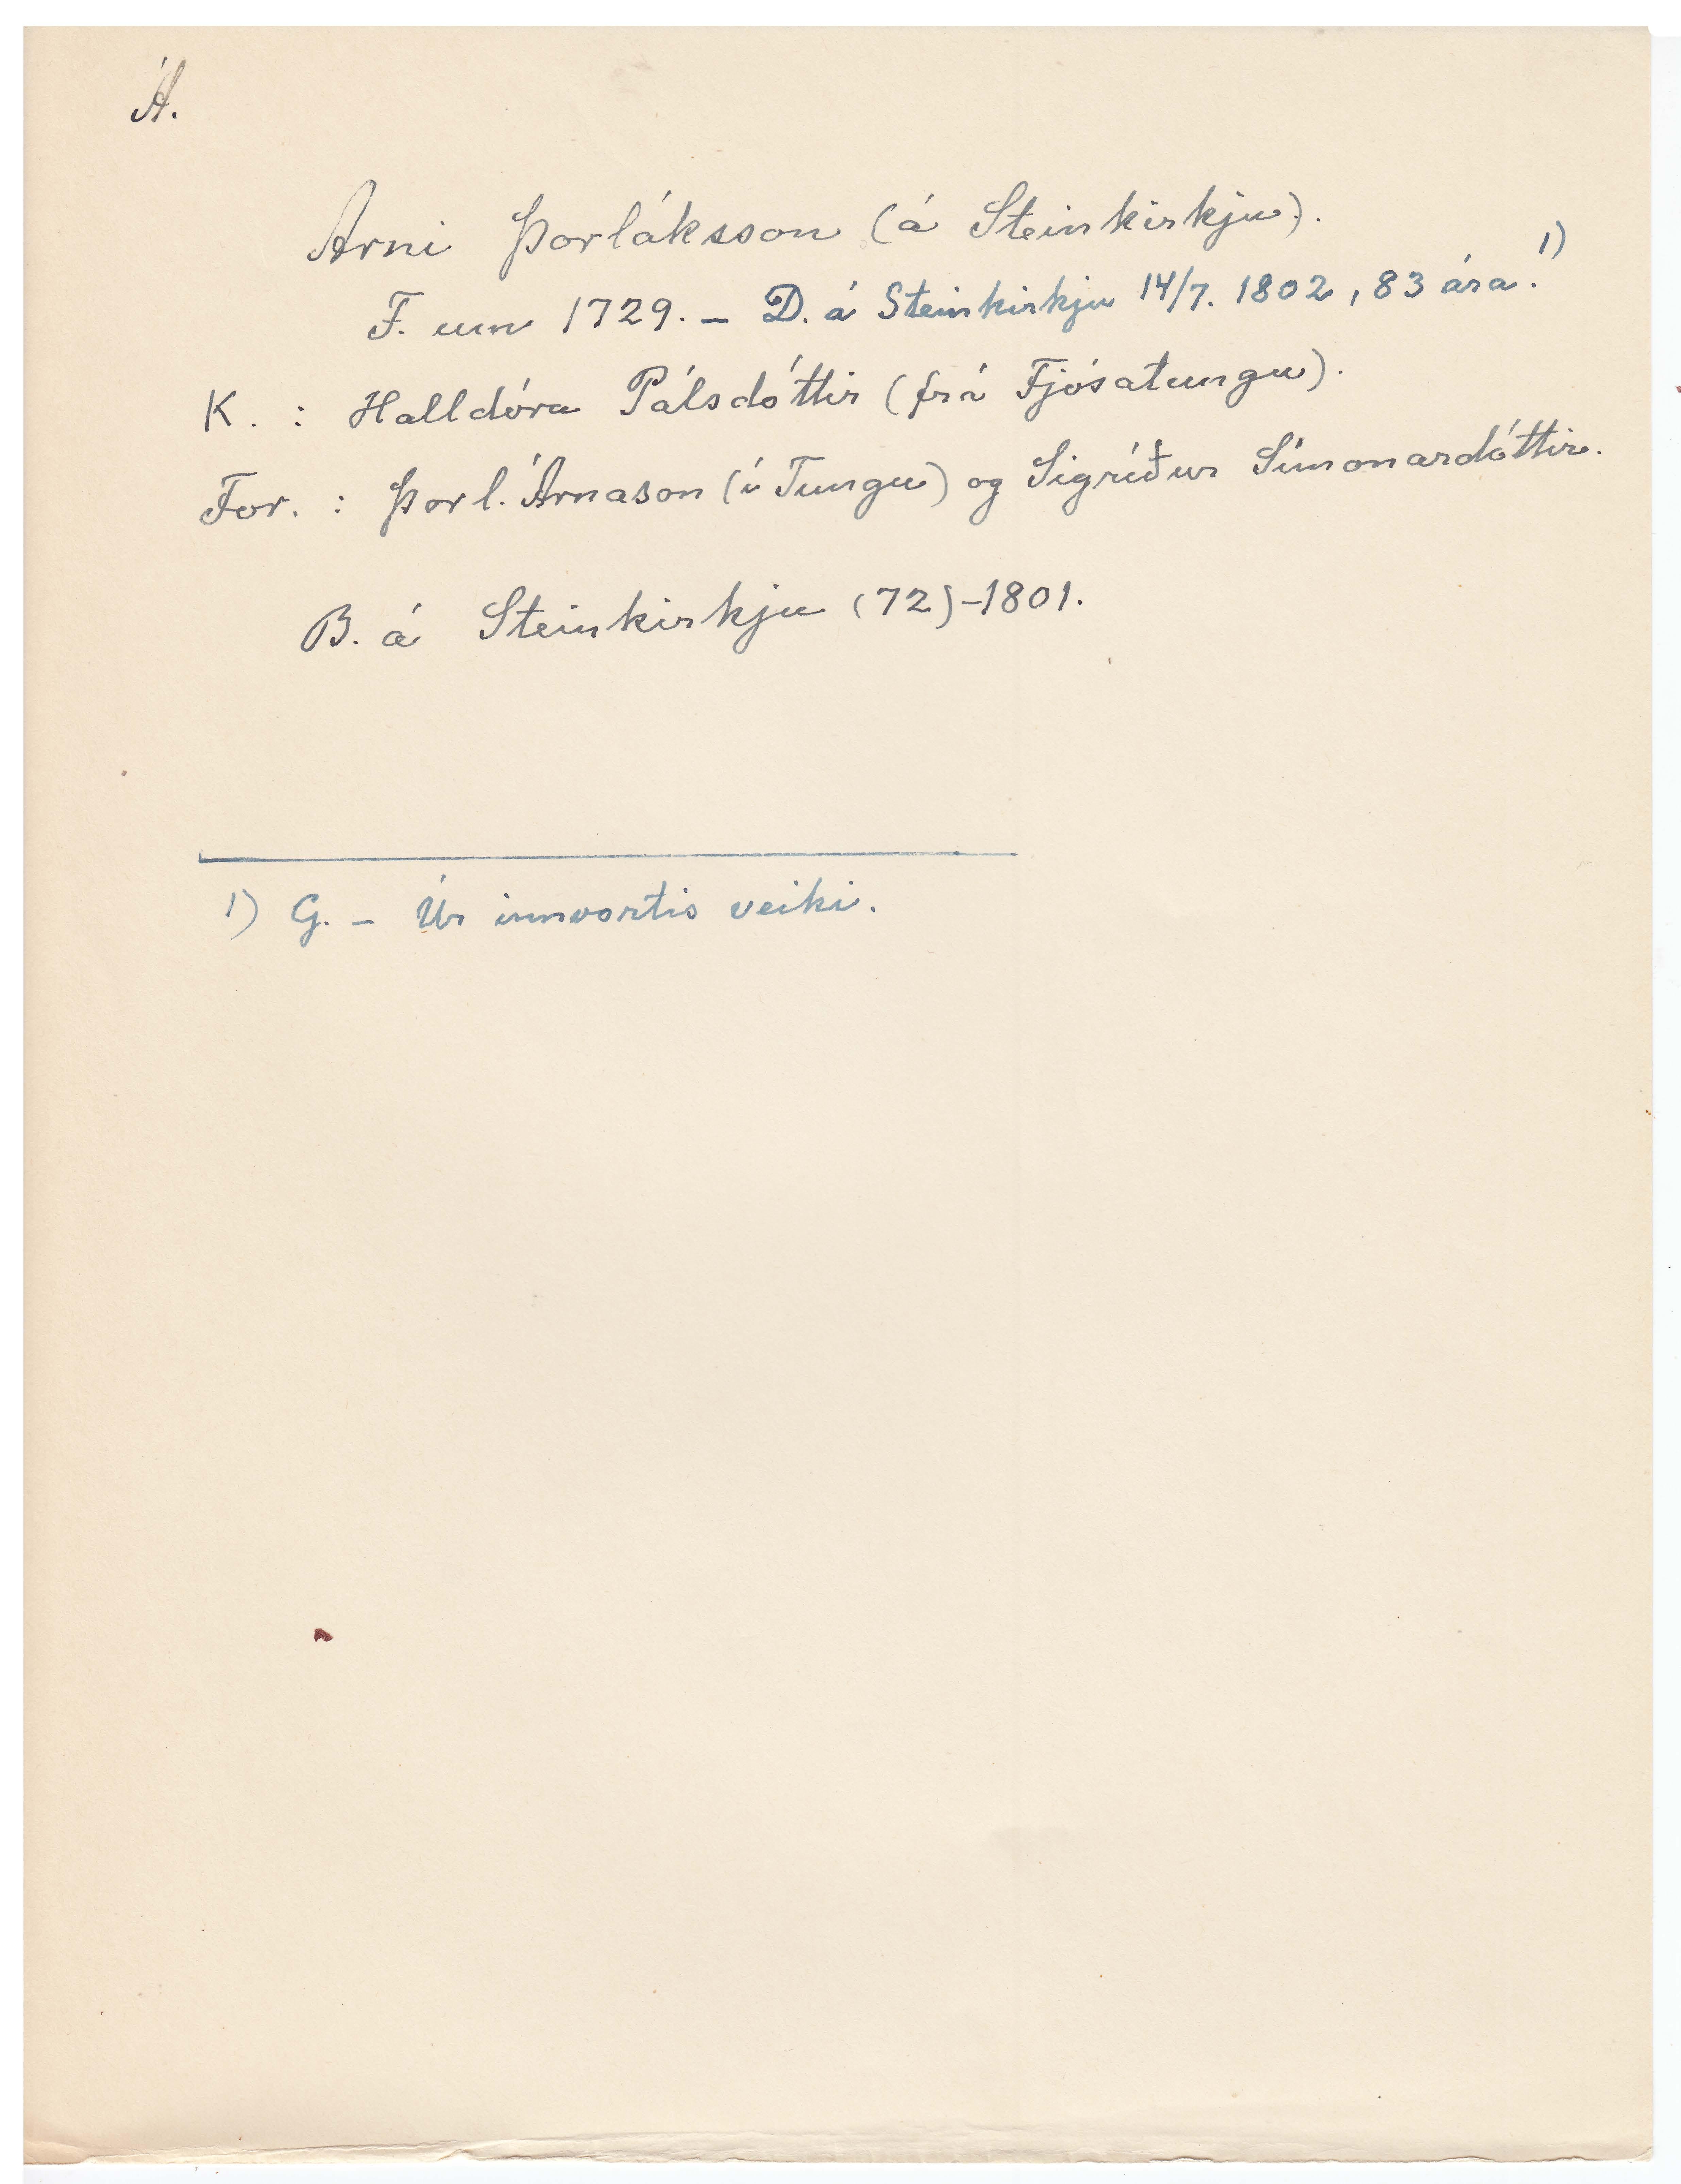 Á.
Árni Þorláksson (á Steinkirkju).
F. um 1729. – D. á Steinkirkju 14/7. 1802, 83 ára.1)
K. : Halldóra Pálsdóttir (frá Fjósatungu).
For. : Þorl. Árnason (í Tungu) og Sigríður Símonardóttir.
B. á Steinkirkju (72)-1801.
1) G. – Úr innvortis veiki.